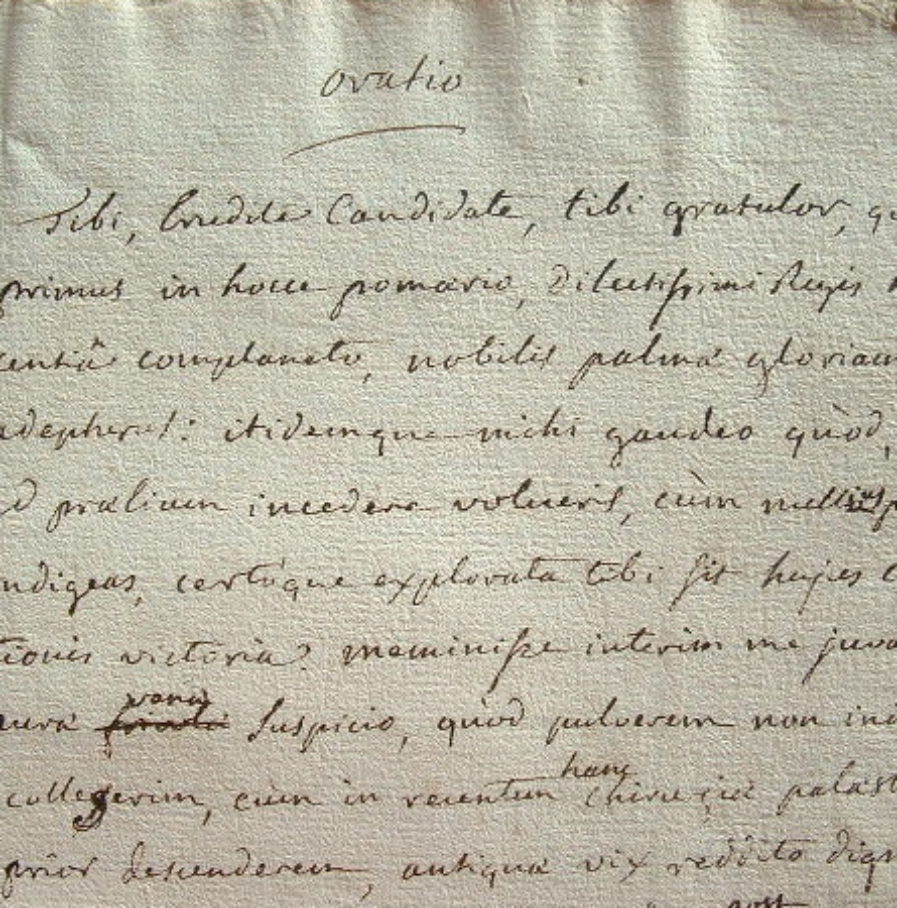 oratio
Tibi, Erudite Candidate, tibi gratulor, qu
primus in hocce pomærio, Dilectissimi Regis
centiâ complanato, nobilis palmæ gloriam
adeptus es: itidemque mihi gaudeo quòd,
d prælium incedere volueris, cùm nullius p
ndigeas, certóque explorata tibi sit hujus
tionis victoria. meminisse interim me juva
vana
suspicio, quòd pulverem non in
collegerim, cùm in recentem
hanc
chirurgiæ palæst
prior descenderem, antiquæ vix reddito dign
post